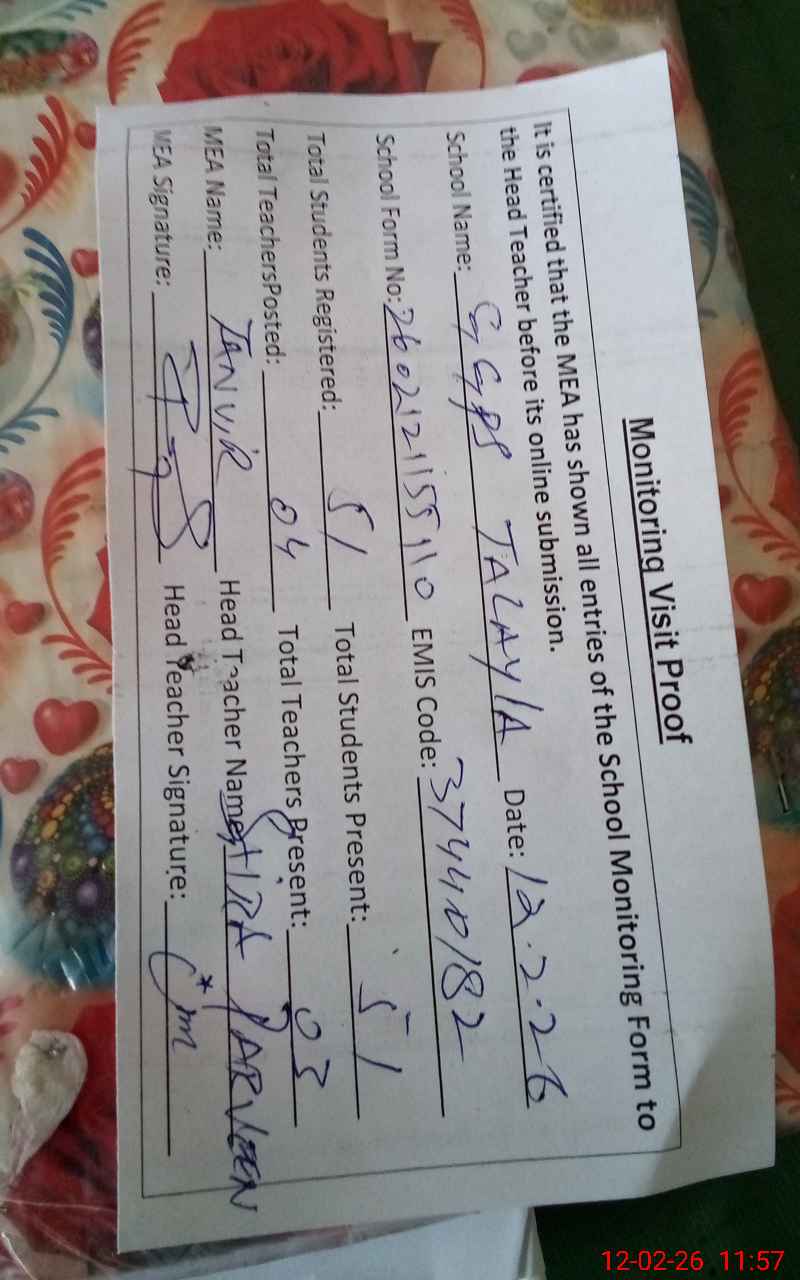 Monitoring Visit Proof
It is certified that the MEA has shown all entries of the School Monitoring Form to
the Head Teacher before its online submission.
School Name: GGPS TALAYIA Date: 12.2.26
School Form No: EMIS Code: 37440182
Total Students Registered: 51 Total Students Present: 51
Total TeachersPosted: 04 Total Teachers Present: 03
MEA Name: TANVIR Head Teacher Name: PARVEEN
MEA Signature: Head Teacher Signature:
12-02-26 11:57